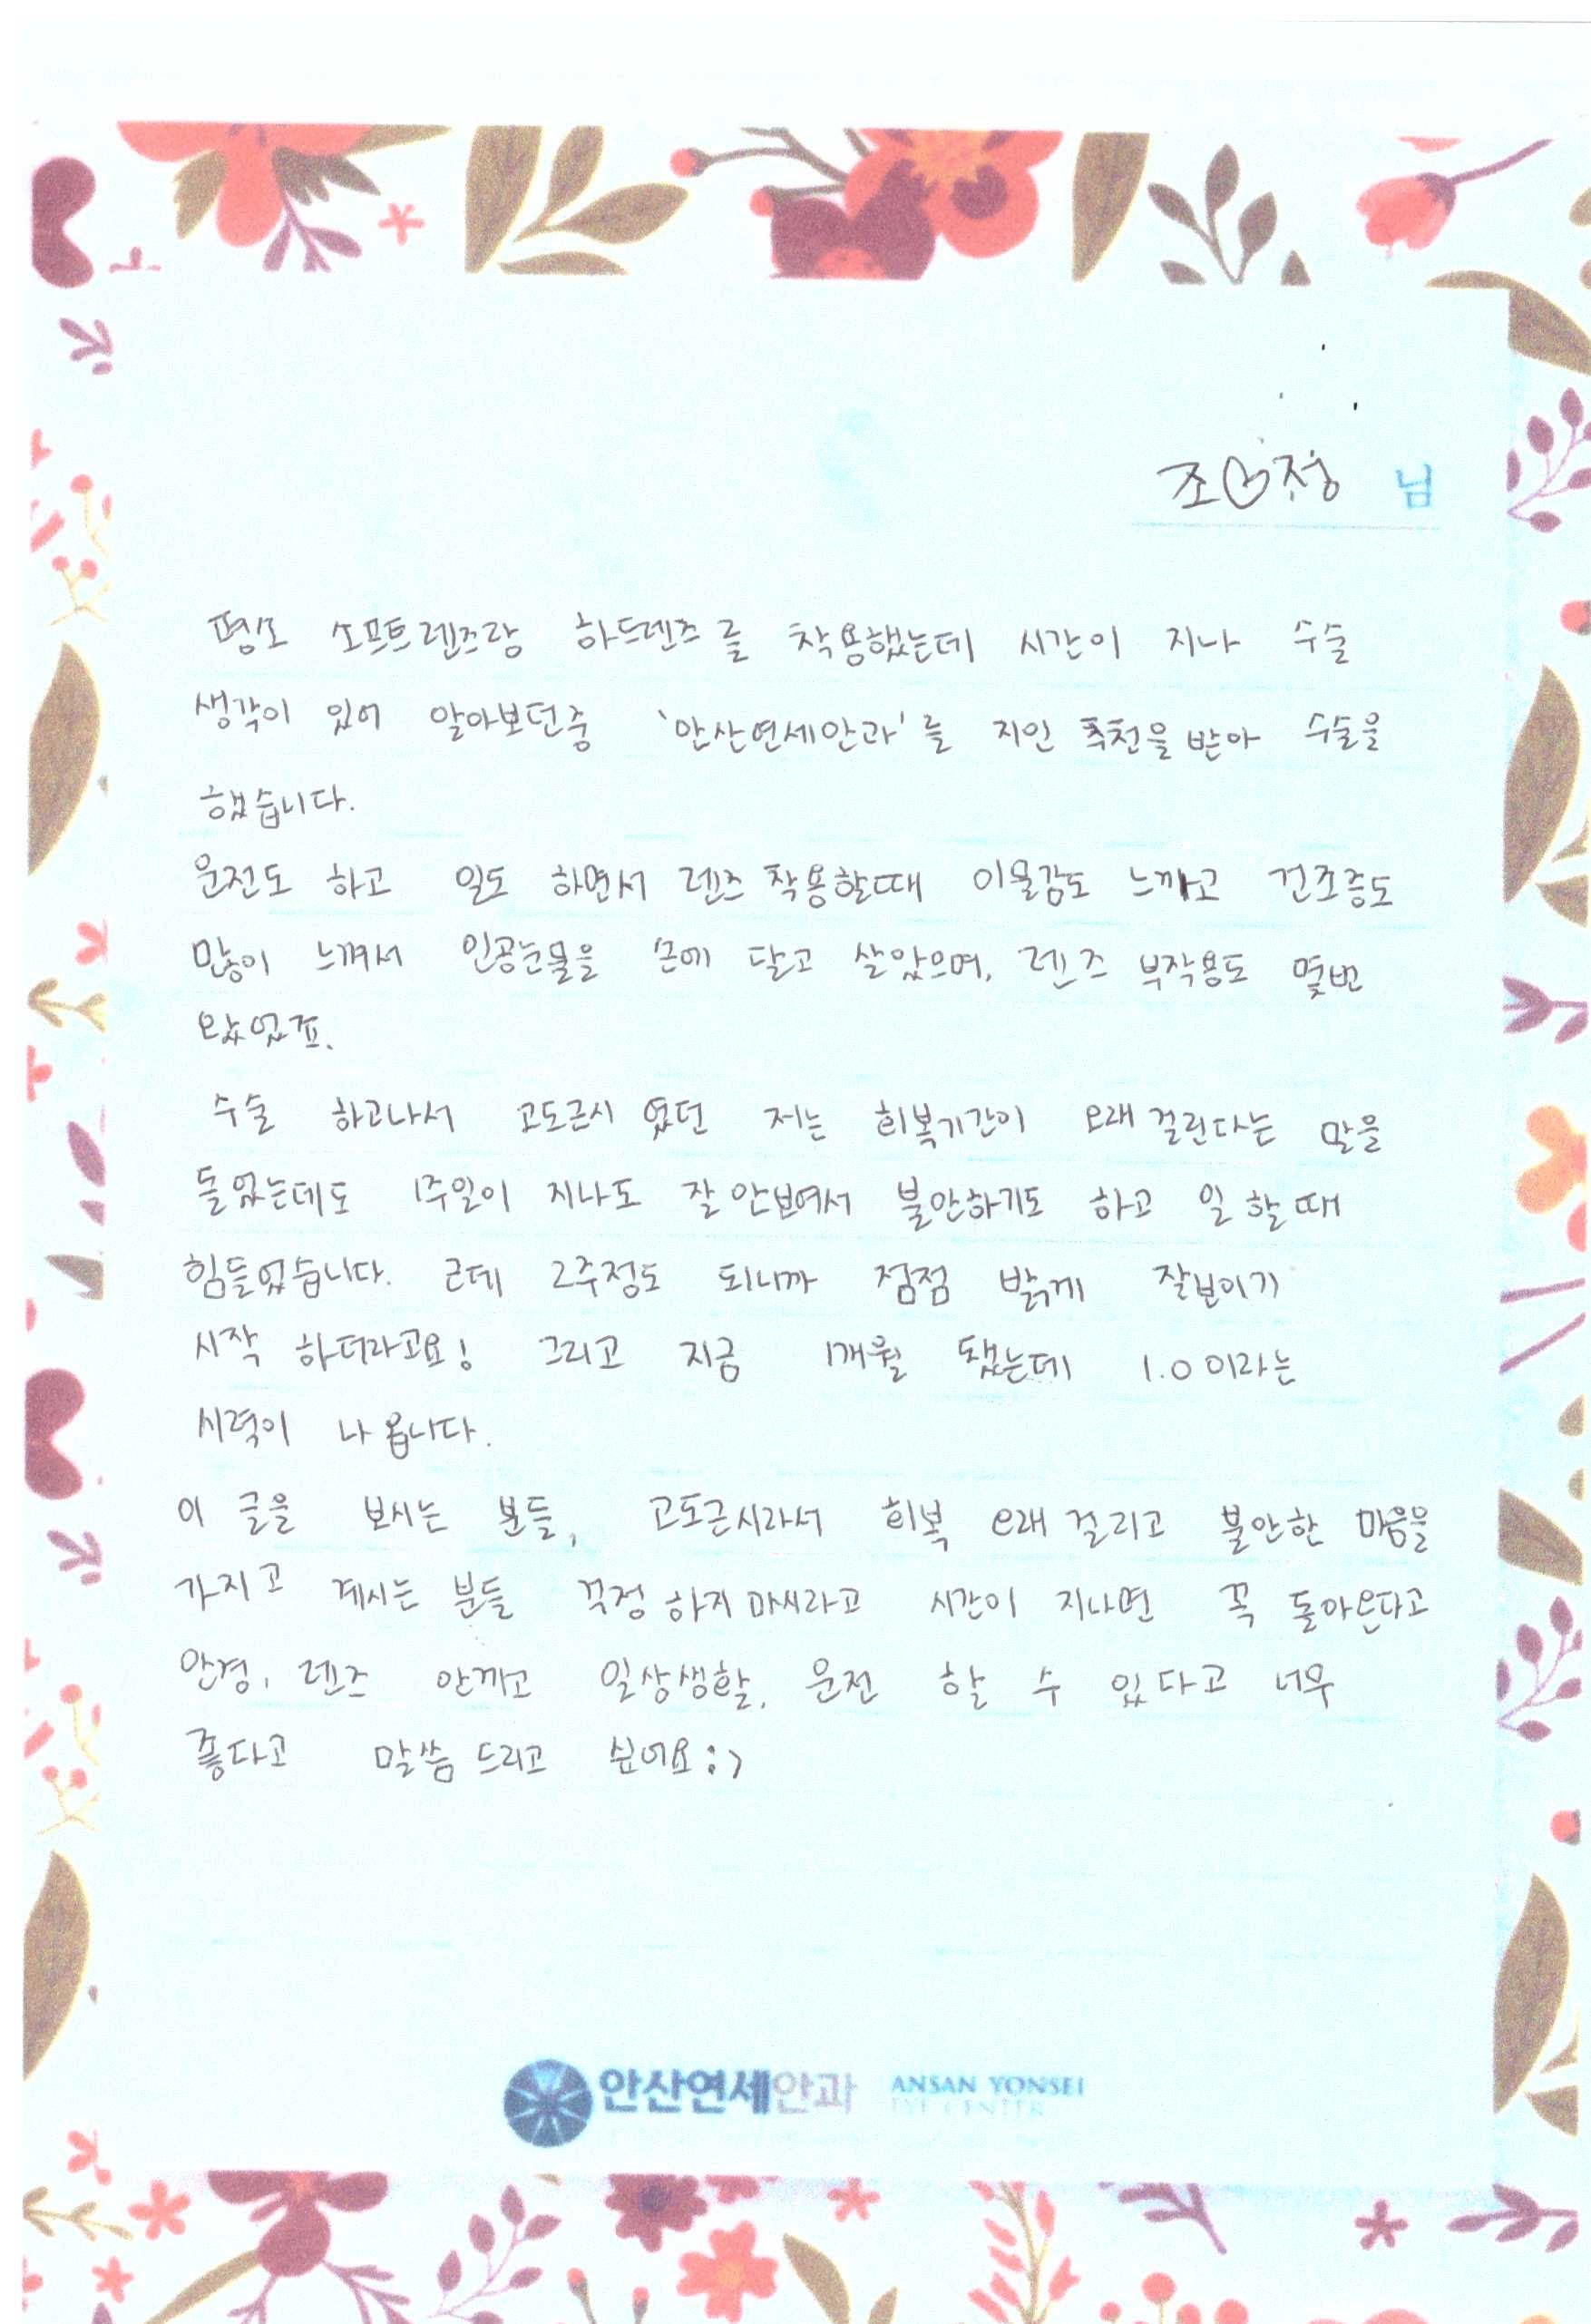 조♡정 님
평소 소프트렌즈랑 하드렌즈를 착용했는데 시간이 지나 수술
생각이 있어 알아보던중 '안산연세안과'를 지인 추천을 받아 수술을
했습니다.
운전도 하고 일도 하면서 렌즈 착용할때 이물감도 느끼고 건조증도
많이 느껴서 인공눈물을 손에 달고 살았으며, 렌즈 부작용도 몇번
왔었죠.
수술 하고나서 고도근시 였던 저는 회복기간이 오래 걸린다는 말을
들었는데도 1주일이 지나도 잘 안보여서 불안하기도 하고 일 할 때
힘들었습니다. 근데 2주정도 되니까 점점 밝게 잘보이기
시작 하더라고요! 그리고 지금 1개월 됐는데 1.0 이라는
시력이 나옵니다.
이 글을 보시는 분들, 고도근시라서 회복 오래 걸리고 불안한 마음을
가지고 계시는 분들 걱정 하지 마시라고 시간이 지나면 꼭 돌아온다고
안경, 렌즈 안끼고 일상생활, 운전 할 수 있다고 너무
좋다고 말씀 드리고 싶어요 :)
안산연세안과 ANSAN YONSEI
EYE CENTER